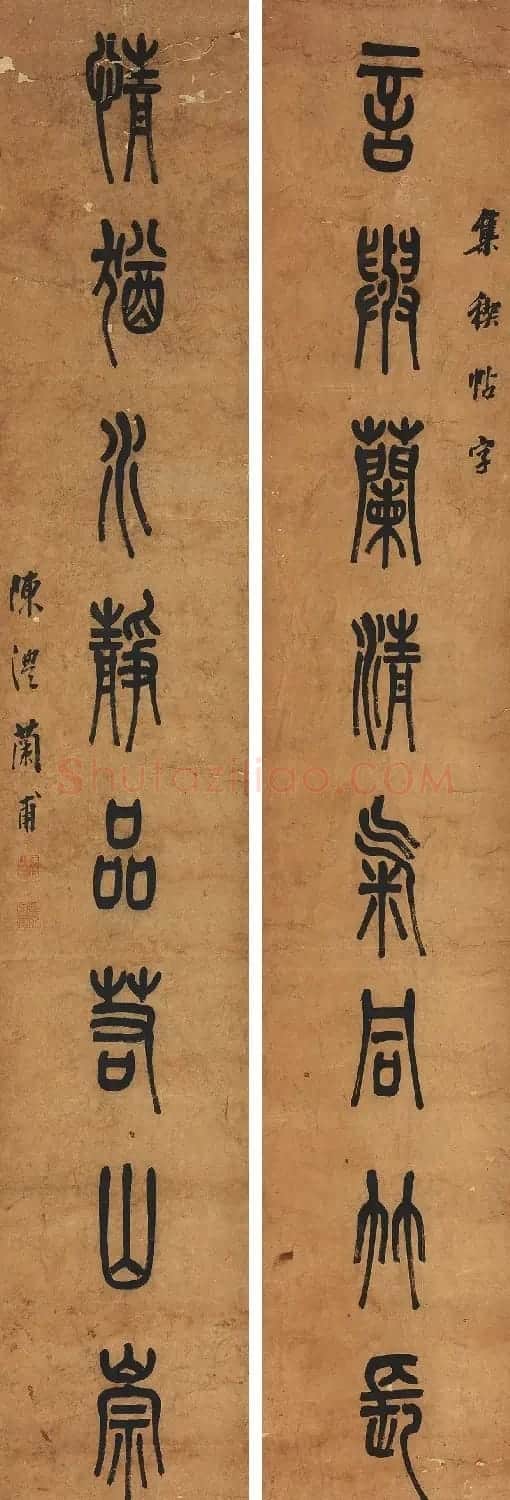 集稧帖字
言與蘭清氣同竹長
情猶水靜品若山崇
陳澧蘭甫
Shufaziliao.COM